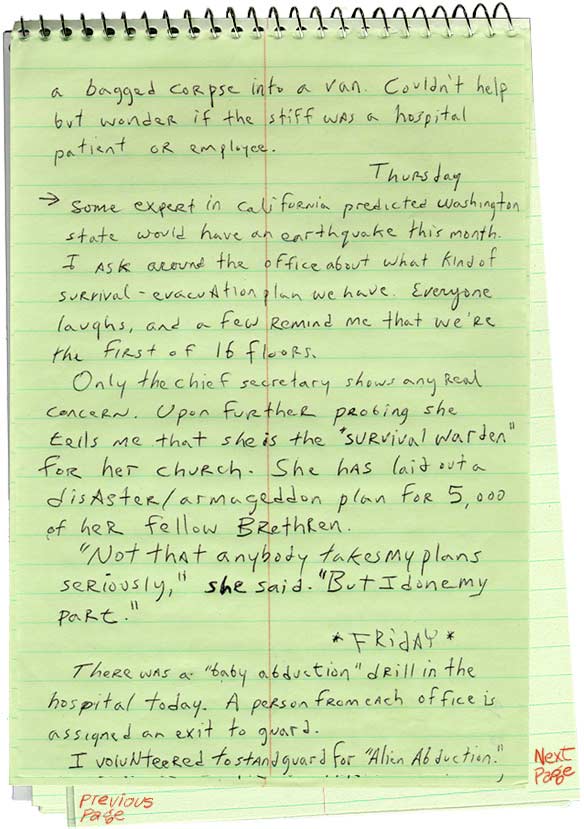 a bagged corpse into a van. Couldn't help
but wonder if the stiff was a hospital
patient or employee.
Thursday
→ Some expert in California predicted Washington
state would have an earthquake this month.
I ask around the office about what kind of
survival-evacuation plan we have. Everyone
laughs, and a few remind me that we're
the first of 16 floors.
Only the chief secretary shows any real
concern. Upon further probing she
tells me that she is the "survival warden"
for her church. She has laid out a
disaster/armageddon plan for 5,000
of her fellow Brethren.
"Not that anybody takes my plans
seriously," she said. "But I done my
part."
* Friday *
There was a "baby abduction" drill in the
hospital today. A person from each office is
assigned an exit to guard.
I volunteered to stand guard for "Alien Abduction."
Next
Page
Previous
Page